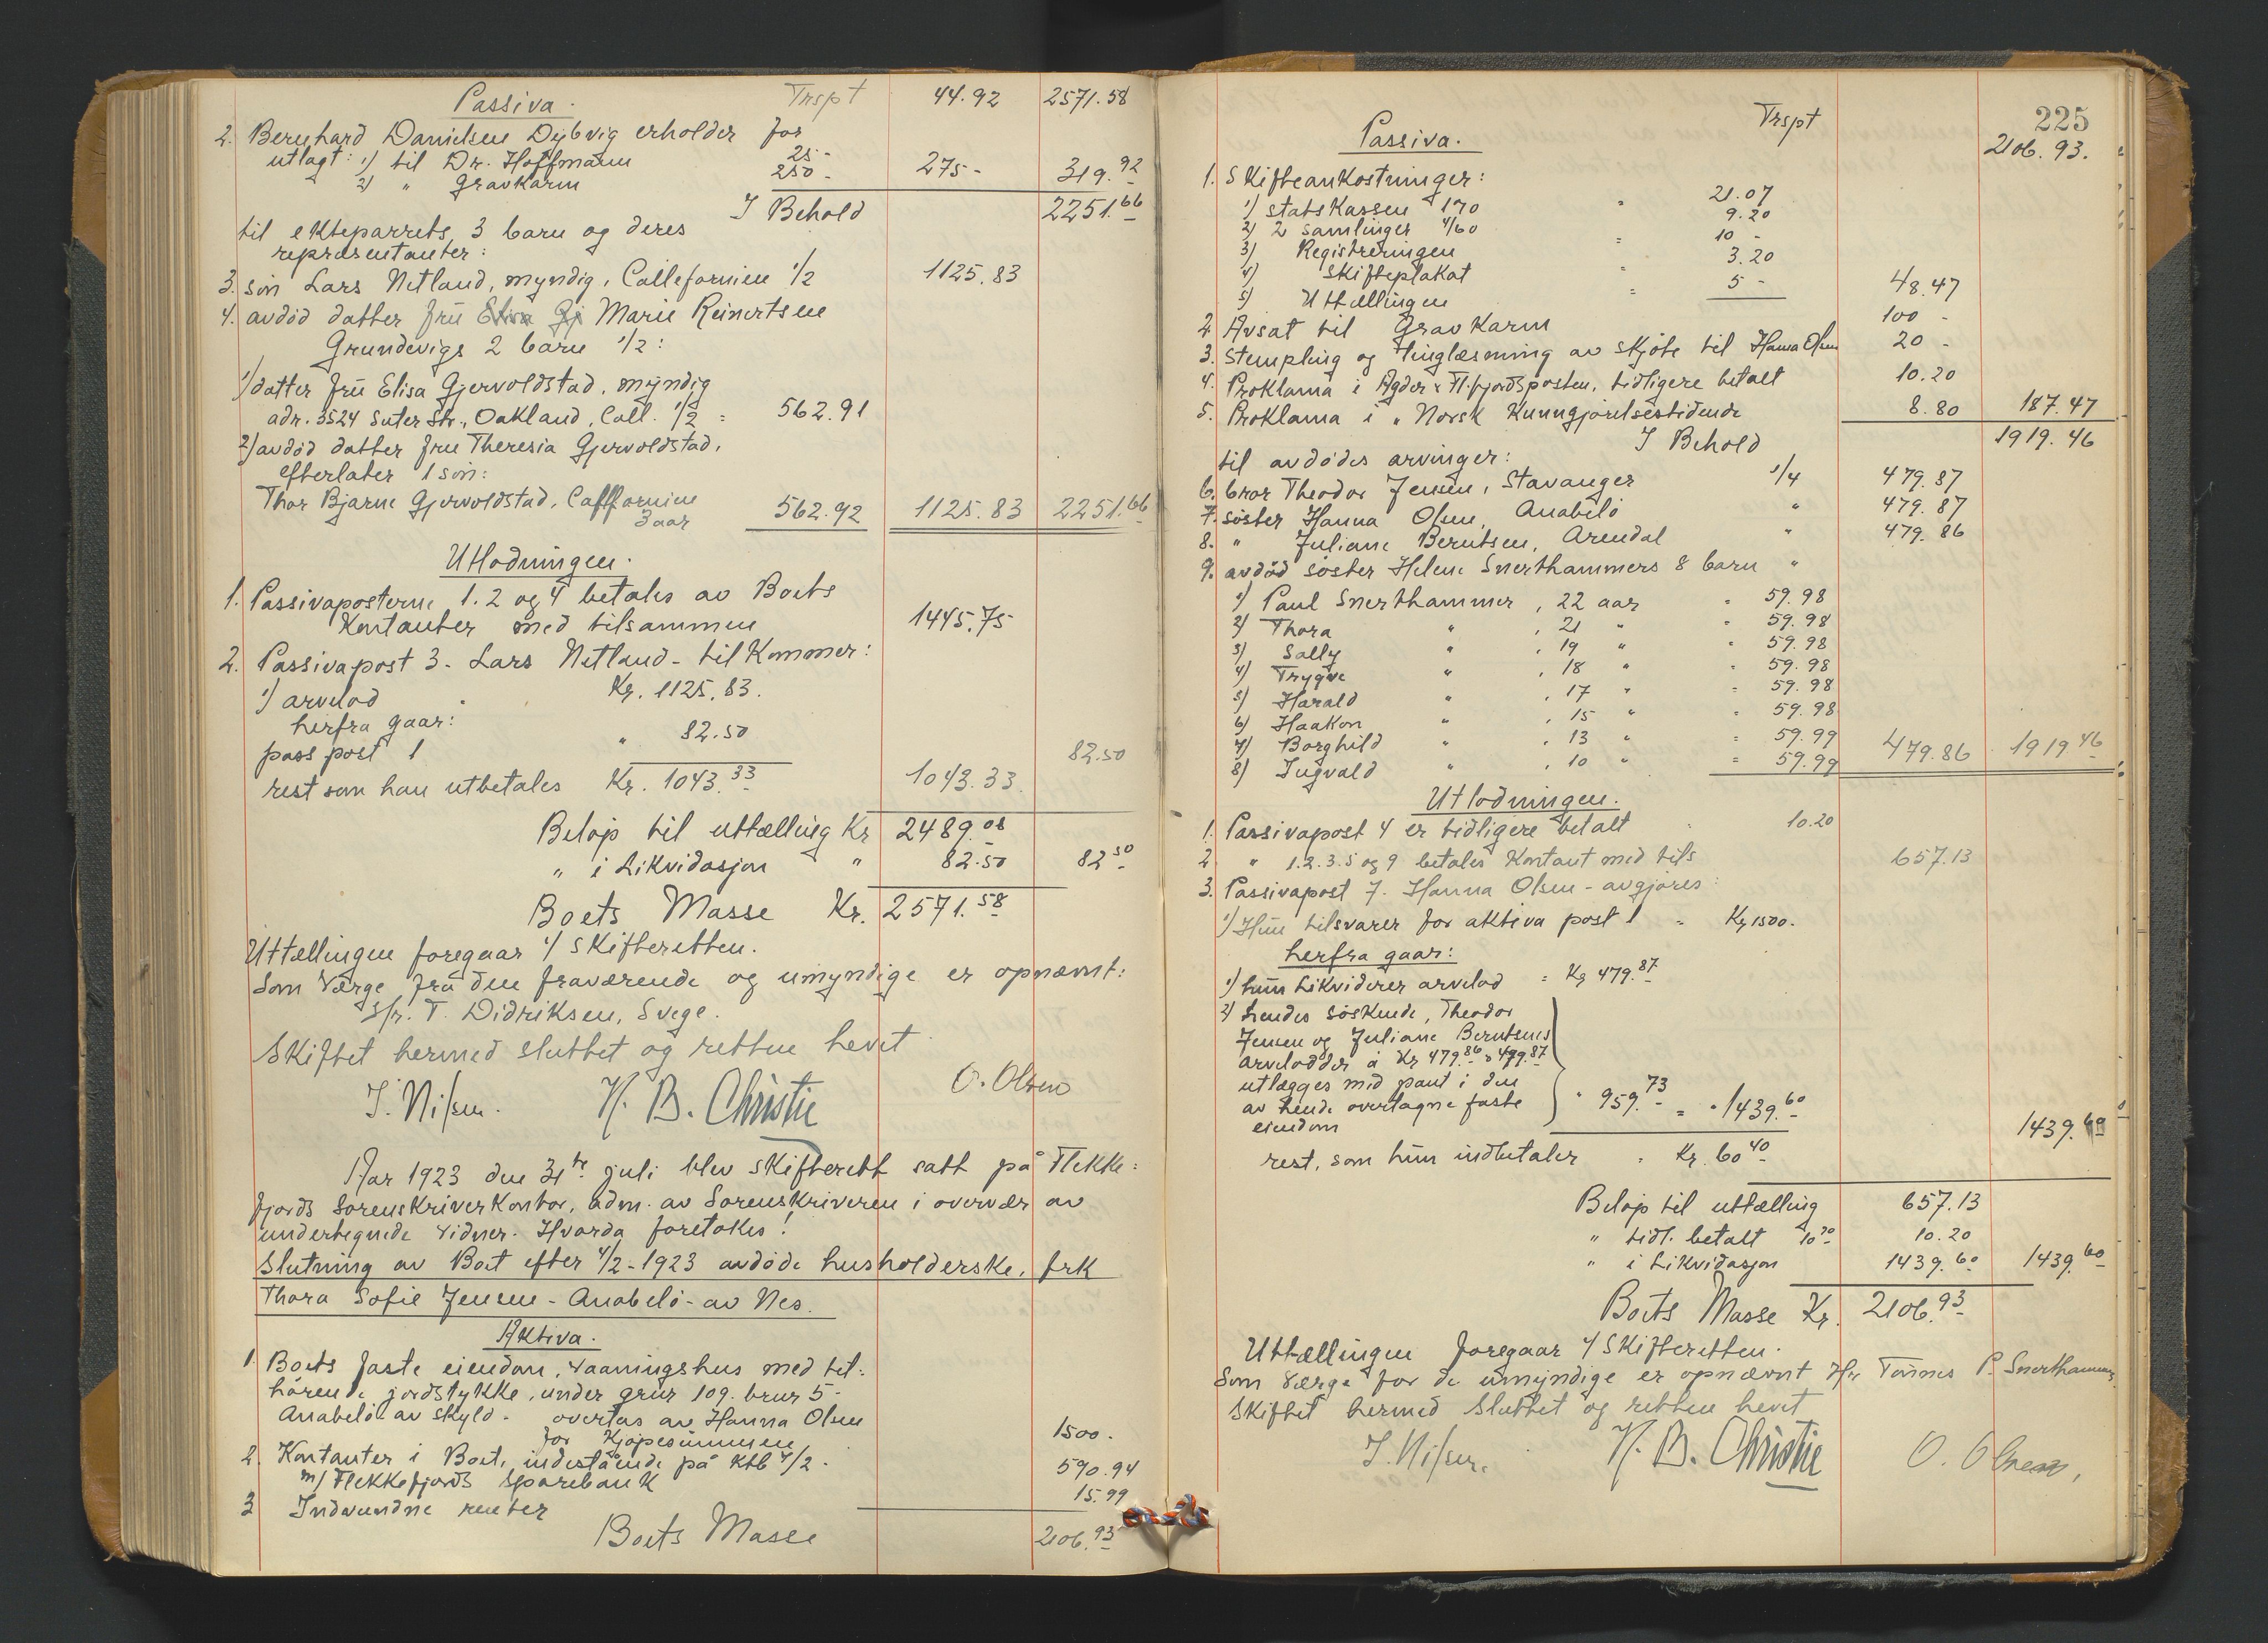 Passiva. Trspt 44.92 2571.58
2. Bernhard Danielsen Dybvig erholder for
utlagt: 1) til Dr. Hoffmann 25-
2) " Gravkarm 250- 275- 319.92
I Behold 2251.66
til ekteparrets 3 barn og deres
repræsentanter:
3. søn Lars Netland, myndig, Callefornien 1/2 1125.83
4. avdød datter fru Marie Reinertsen
Grundevigs 2 barn 1/2:
1) datter fru Elisa Gjervoldstad, myndig
adr. 3524 Suter Str., Oakland, Call. 1/2 = 562.91
2) avdød datter fru Theresia Gjervoldstad,
efterlater 1 søn:
Thor Bjarne Gjervoldstad, Callfornien
3 aar 562.92 1125.83 2251.66
Utlodningen.
1. Passivaposterne 1. 2 og 4 betales av Boets
Kontanter med tilsammen 1445.75
2. Passivapost 3 - Lars Netland - tilkommer:
1) arvelod Kr. 1125.83.
herfra gaar:
pass post 1 " 82.50 82.50
rest som han utbetales Kr. 1043.33 1043.33
Beløp til uttælling Kr 2489.08
" i Likvidasjon " 82.50 82.50
Boets Masse Kr. 2571.58
Uttællingen foregaar i/ Skifteretten.
Som Værge for den fraværende og umyndige er opnævnt:
Hr. T. Didriksen, Svege.
Skiftet hermed sluttet og retten hevet
J. Nilsen. H. B. Christie O. Olsen
Aar 1923 den 31te juli blev skifterett satt på Flekke=
fjords Sorenskriverkontor, adm. av Sorenskriveren i overvær av
undertegnede vidner. Hvorda foretokes!
Slutning av Boet efter 4/2-1923 avdøde husholderske, frk
Thora Sofie Jensen - Anabelø - av Nes.
Aktiva.
1. Boets faste eiendom, vaaningshus med til=
hørende jordstykke, under gnr 109. brnr 5 -
Anabelø av skyld - overtas av Hanna Olsen
for Kjøpesummen 1500.
2. Kontanter i Boet, indestående på Ktb 4/2 -
m/ Flekkefjords Sparebank 590.94
3 Indvundne renter 15.99
Boets Masse 2106.93
225
Passiva. Trspt 2106.93.
1. Skifteankostninger:
1) statskassen 170 " 21.07
2) 2 samlinger 4/60 9.20
3) Registreringen = 10 -
4) Skifteplakat " 3.20
5) Uttællingen = 5 - 48.47
2. Avsat til Gravkarm 100 -
3. Stempling og tinglæsning av skjøte til Hanna Olsen 20 -
4. Proklama i Agder & Fl.fjordsposten, tidligere betalt 10.20
5. Proklama i "Norsk Kunngjørelsestidende 8.80 187.47
I Behold 1919.46
til avdødes arvinger:
6. bror Theodor Jensen, Stavanger 1/4 479.87
7. søster Hanna Olsen, Anabelø " 479.87
8. " Juliane Berntsen, Arendal " 479.86
9. avdød søster Helene Snerthammers 8 barn "
1) Paul Snerthammer, 22 aar = 59.98
2) Thora " , 21 " = 59.98
3) Sally " , 19 " = 59.98
4) Trygve " , 18 " = 59.98
5) Harald " , 17 " = 59.98
6) Haakon " , 15 " = 59.98
7) Borghild " , 13 " = 59.99
8) Ingvald " , 10 " = 59.99 479.86 1919.46
Utlodningen.
1. Passivapost 4 er tidligere betalt 10.20
2 " 1.2.3.5 og 9 betales Kontant med tils 657.13
3. Passivapost 7. Hanna Olsen - avgjøres:
1) Hun tilsvarer for aktiva post 1 = Kr 1500.
herfra gaar:
1) hun Likviderer arvelod = Kr 479.87
2) hendes søskende, Theodor
Jensen og Juliane Berntsens
arvelodder a Kr 479.86 & 479.87
utlægges med pant i den
av hende overtagne faste " 959.73 = " 1439.60
eiendom 1439.60
rest, som hun indbetaler = Kr. 60.40
Beløp til uttælling 657.13
" tidl. betalt 10.20 10.20
" i Likvidasjon 1439.60 1439.60
Boets Masse Kr. 2106.93
Uttællingen foregaar i/ Skifteretten.
Som Værge for de umyndige er opnævnt Hr Tønnes P. Snerthammer.
Skiftet hermed sluttet og retten hevet
J. Nilsen. H. B. Christie O. Olsen,